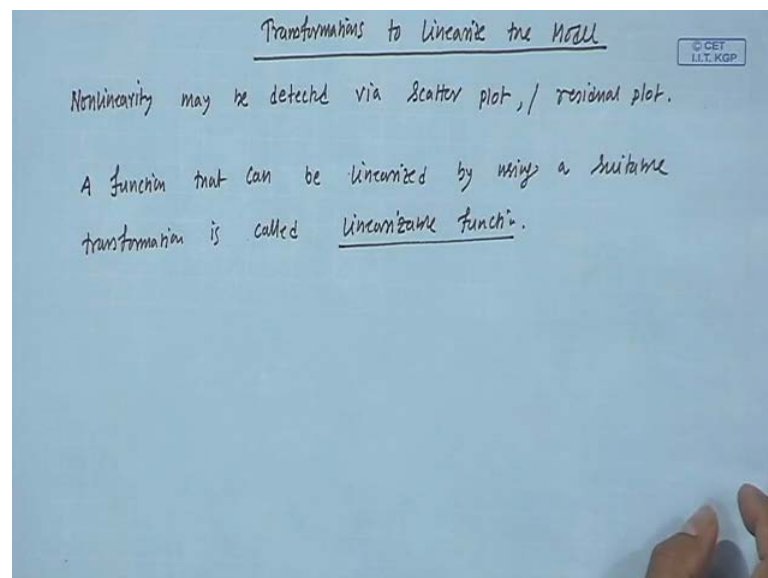 Transformations to Linearize the Model
© CET
I.I.T. KGP
Nonlinearity may be detected via Scatter plot, / residual plot.
A function that can be linearized by using a suitable
transformation is called linearizable function.